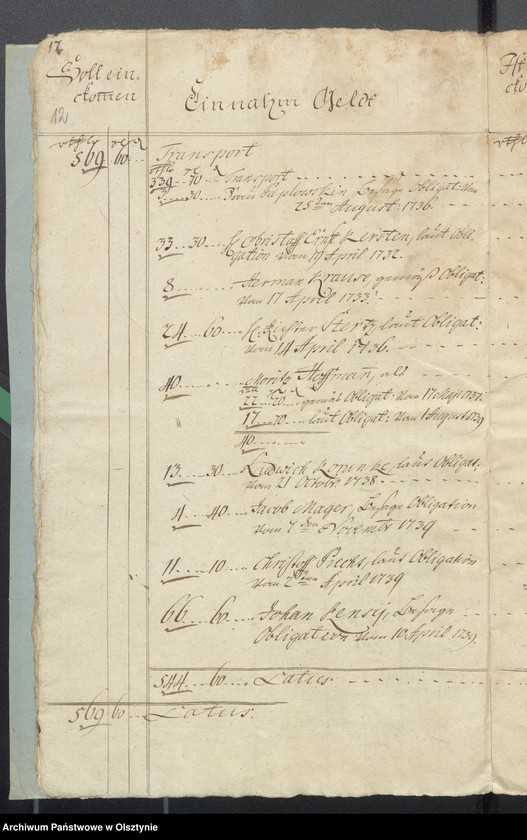 12
Soll ein.
ckomen
Einnahm Geldt
12
rthlr gl
569 60 Transport
rthlr gl
339 70 Transport
30 Obligat: Vom
25 ten August: 1736
33 30 H. Christoff Ernst Kersten, laut Obli-
gation Vom April 1732.
8 Herman Krause, gemäß Obligat:
Vom 17 April 1733.
24 60 H. Richter Stertz laut Obligat:
Vom 14 April 1736.
40 Moritz Hoffmann, als
22 20 gemäß Obligat: Vom 17 May 1737.
17 70 laut Obligat: Vom 1 August 1739
40
13 30 Ludwich laut Obligat:
Vom 21 Octobr 1738
4 40 Jacob Mager, Besage Obligation
Vom 7 den Novembr 1739
11 10 Christoff laut Obligation
Vom 2 ten April 1739
66 60 Johan Besage
Obligation Vom 10 April 1739.
544 60 Latus.
569 60 Latus.
Archiwum Państwowe w Olsztynie